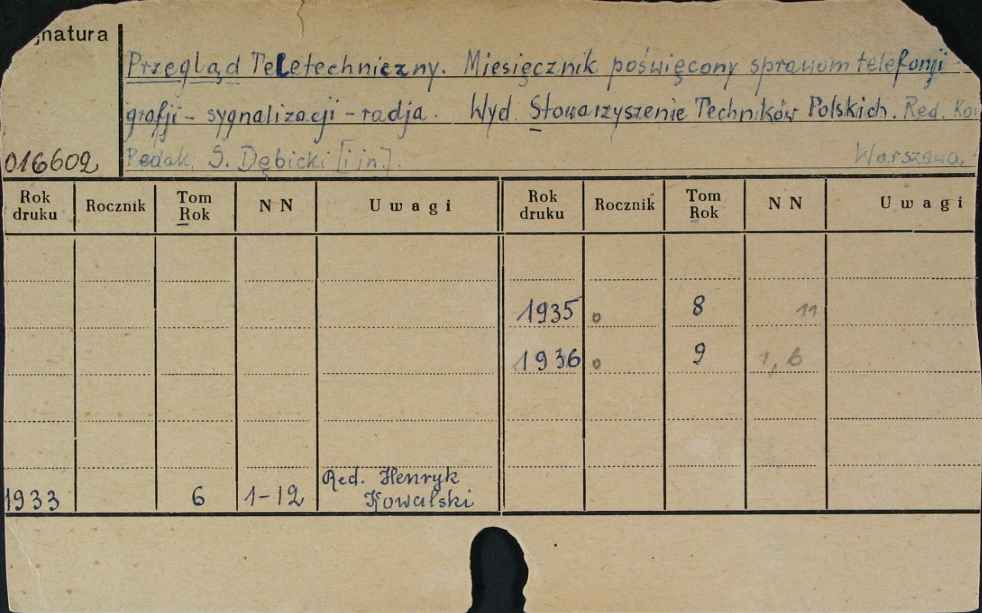 gnatura
Przegląd Teletechniczny. Miesięcznik poświęcony sprawom telefonji
grafji - sygnalizacji - radja. Wyd. Stowarzyszenie Techników Polskich. Red. Kom
016602 Redak. S. Dębicki [i in]. Warszawa.
Rok druku Rocznik Tom Rok N N Uwagi Rok druku Rocznik Tom Rok N N Uwagi
1935 8 11
1936 9 1, 6
1933 6 1-12 Red. Henryk
Kowalski